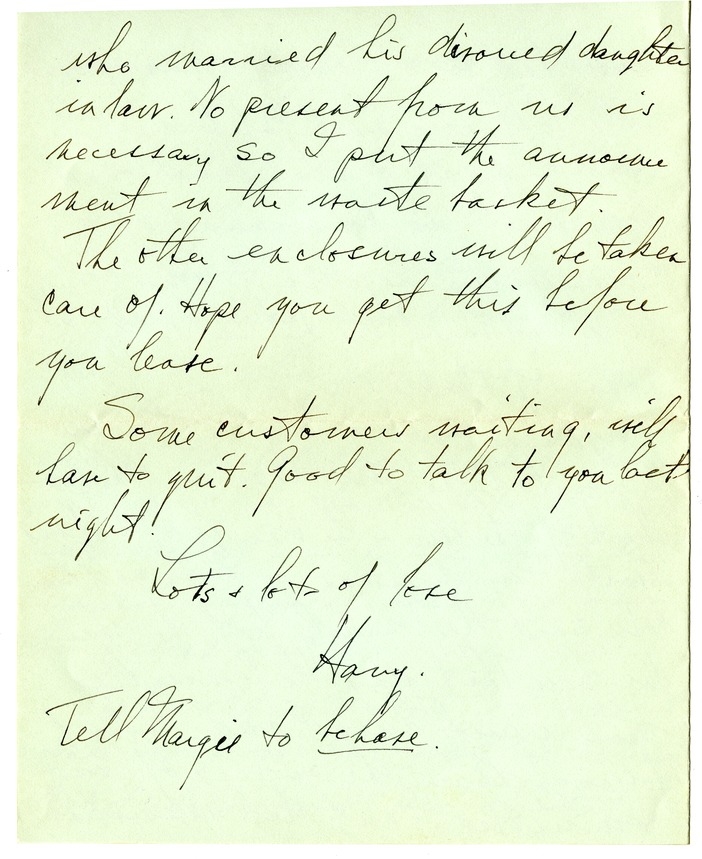 who married his divorced daughter
in law. No present from us is
necessary so I put the announce
ment in the waste basket.
The other enclosures will be taken
care of. Hope you get this before
you leave.
Some customers waiting, will
have to quit. Good to talk to you last
night.
Lots & lots of love
Harry.
Tell Margie to behave.